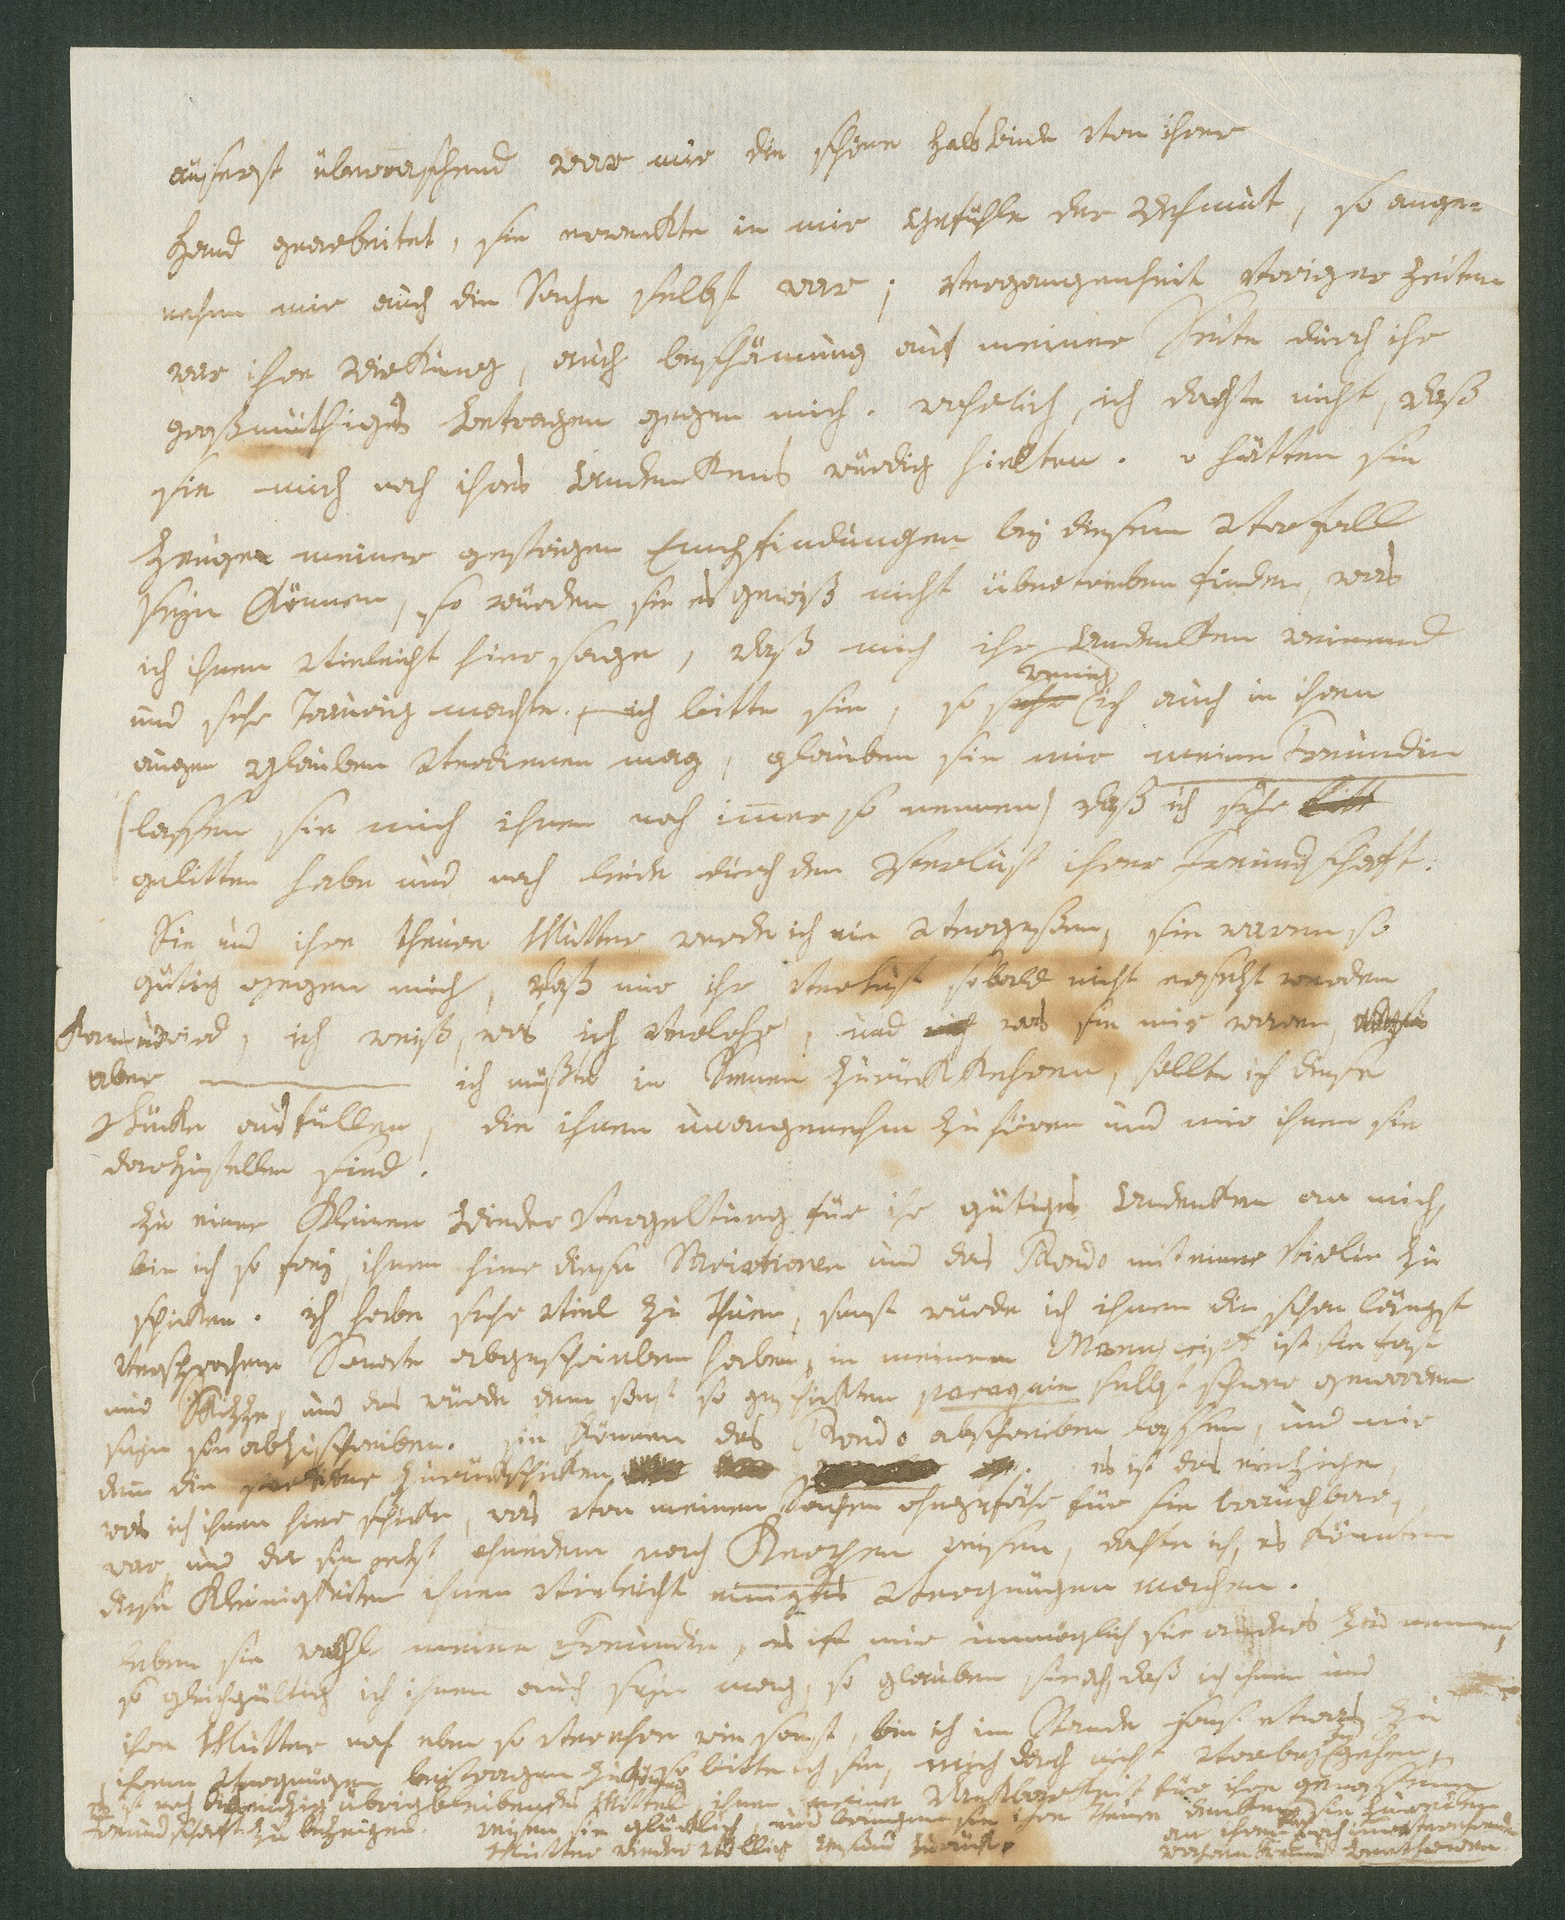 äuserst überraschend war mir die schöne Halsbinde von ihrer
Hand gearbeitet, sie erweckte in mir Gefühle der Wehmut, so ange-
nehm mir auch die Sache selbst war; Vergangenheit voriger Zeiten
war ihre Wirkung, auch beschämung auf meiner Seite durch ihr
großmüthiges betragen gegen mich. wahrlich, ich dachte nicht, daß
sie mich noch ihres Andenkens würdig hielten. o hätten sie
Zeuge meiner gestrigen Empfindungen bey diesem Vorfall
seyn können, so würden sie es gewiß nicht übertrieben finden, was
ich ihnen vieleicht hier sage, daß mich ihr Andenken weinend
und sehr Traurig machte. – ich bitte sie, so wenig ich auch in ihren
augen Glauben verdienen mag, glauben sie mir meine Freundin
(lassen sie mich ihnen noch immer so nennen) daß ich sehr
gelitten habe und noch leide durch den Verlust ihrer Freundschaft.
Sie und ihre theure Mutter werde ich nie vergeßen, sie waren so
gütig gegen mich, daß mir ihr Verlust sobald nicht ersezt werden
kann und wird, ich weiß, was ich verlohr, und was sie mir waren,
aber ——— ich müßte in Scenen zurückkehren, sollte ich diese
Lücke ausfüllen, die ihnen unangenehm zu hören und mir ihnen sie
darzustellen sind.
zu einer kleinen Wieder Vergeltung für ihr gütiges Andenken an mich,
bin ich so frey ihnen hier diese Variationen und das Rondo mit einer Violin zu
schicken. ich habe sehr viel zu thuen, sonst würde ich ihnen die schon längst
versprochene Sonate abgeschrieben haben, in meinem Manuscript ist sie fast
nur Skizze, und es würde dem sonst so geschickten paraquin selbst schwer geworden
seyn sie abzuschreiben. sie können das Rondo abschreiben lassen, und mir
dann die partitur zurückschicken. es ist das einzige,
was ich ihnen hier schicke, was von meinen Sachen ohngefähr für sie brauchbar
war, und da sie jezt ohnedem nach Kerpen reisen, dachte ich, es könnten
diese Kleinigkeiten ihnen vieleicht einiges vergnügen machen.
leben sie wohl meine Freundin, es ist mir unmöglich sie anders zu nennen,
so gleichgültig ich ihnen auch seyn mag, so glauben sie doch, daß ich ihnen und
ihre Mutter noch eben so verehre wie sonst, bin ich im Stande sonst etwas zu
ihrem vergnügen beitragen zu können, so bitte ich sie, mich doch nicht vorbeyzugehen,
es ist noch das einzig übrigbleibende Mittel ihnen meine Dankbarkeit für ihre genossene
Freundschaft zu bezeigen. reisen sie glücklich, und bringen sie ihre theure
Mutter wieder völlig gesund zurück.
denken sie zuweilen
an ihren noch immer verehrenden
wahren Freund Beethowen.